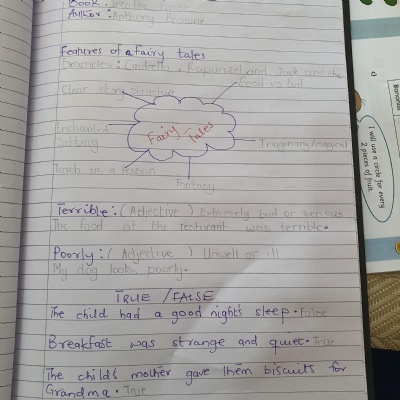 Book: Into the Forest
Author: Anthony Browne
Features of a Fairy tales
Examples: Cindrella, Rapunzel and Jack and the
Good vs Bad
Clear story structure
Fairy Tales
Enchanted
Setting
Imaginary/magical
Teach us a lesson
Fantasy
Terrible: (Adjective) Extremely bad or serious
The food at the resturant was terrible.
Poorly: (Adjective) Unwell or ill
My dog looks poorly.
TRUE / FALSE
The child had a good night's sleep. False
Breakfast was strange and quiet. True
The child's mother gave them biscuits for
Grandma. True
c)
Bananas
I will use a circle for every
2 pieces of fruit.